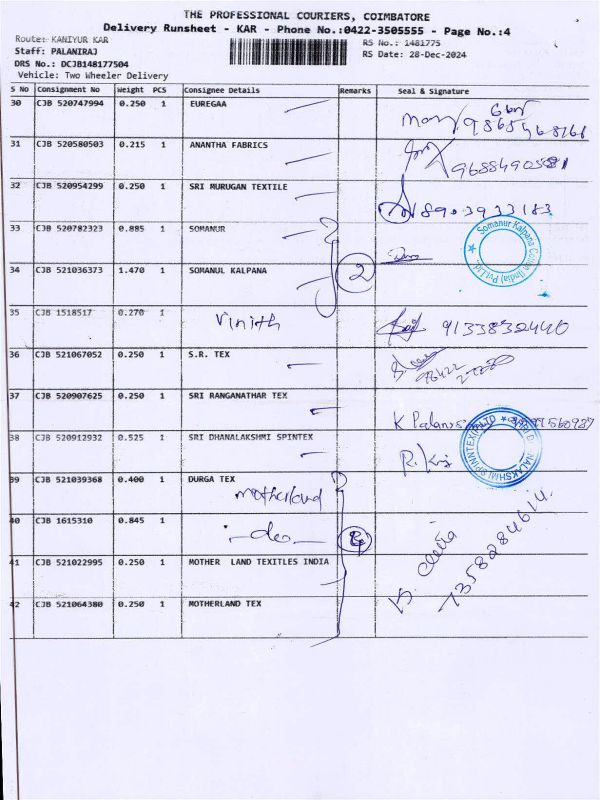 THE PROFESSIONAL COURIERS, COIMBATORE
Delivery Runsheet - KAR - Phone No.:0422-3505555 - Page No.:4
Route: KANIYUR KAR
RS No.: 1481775
Staff: PALANIRAJ
RS Date: 28-Dec-2024
DRS No.: DCJB148177504
Vehicle: Two Wheeler Delivery
S No Consignment No Weight PCS Consignee Details Remarks Seal & Signature
30 CJB 520747994 0.250 1 EUREGAA
31 CJB 520580503 0.215 1 ANANTHA FABRICS
32 CJB 520954299 0.250 1 SRI MURUGAN TEXTILE 8903933183
33 CJB 520782323 0.885 1 SOMANUR
Somanur Kalpana Cotton (India) Pvt.Ltd.
34 CJB 521036373 1.470 1 SOMANUL KALPANA 2
35 CJB 1518517 0.270 1 Vinith 9133832440
36 CJB 521067052 0.250 1 S.R. TEX
37 CJB 520907625 0.250 1 SRI RANGANATHAR TEX
38 CJB 520912932 0.525 1 SRI DHANALAKSHMI SPINTEX
39 CJB 521039368 0.400 1 DURGA TEX
motherland
40 CJB 1615310 0.845 1 -do-
7358284614
41 CJB 521022995 0.250 1 MOTHER LAND TEXITLES INDIA
42 CJB 521064380 0.250 1 MOTHERLAND TEX